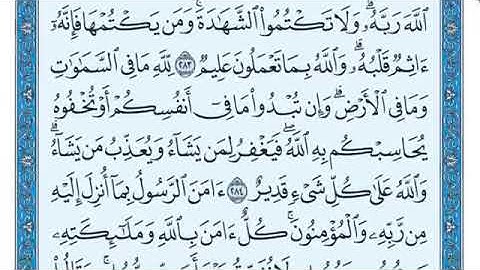 ٱللَّهَ رَبَّهُۥۗ وَلَا تَكْتُمُوا۟ ٱلشَّهَٰدَةَۚ وَمَن يَكْتُمْهَا فَإِنَّهُۥٓ
ءَاثِمٌ قَلْبُهُۥۗ وَٱللَّهُ بِمَا تَعْمَلُونَ عَلِيمٌ ٢٨٣ لِّلَّهِ مَا فِى ٱلسَّمَٰوَٰتِ
وَمَا فِى ٱلْأَرْضِۗ وَإِن تُبْدُوا۟ مَا فِىٓ أَنفُسِكُمْ أَوْ تُخْفُوهُ
يُحَاسِبْكُم بِهِ ٱللَّهُۖ فَيَغْفِرُ لِمَن يَشَآءُ وَيُعَذِّبُ مَن يَشَآءُۗ
وَٱللَّهُ عَلَىٰ كُلِّ شَىْءٍ قَدِيرٌ ٢٨٤ ءَامَنَ ٱلرَّسُولُ بِمَآ أُنزِلَ إِلَيْهِ
مِن رَّبِّهِۦ وَٱلْمُؤْمِنُونَۚ كُلٌّ ءَامَنَ بِٱللَّهِ وَمَلَٰٓئِكَتِهِۦ